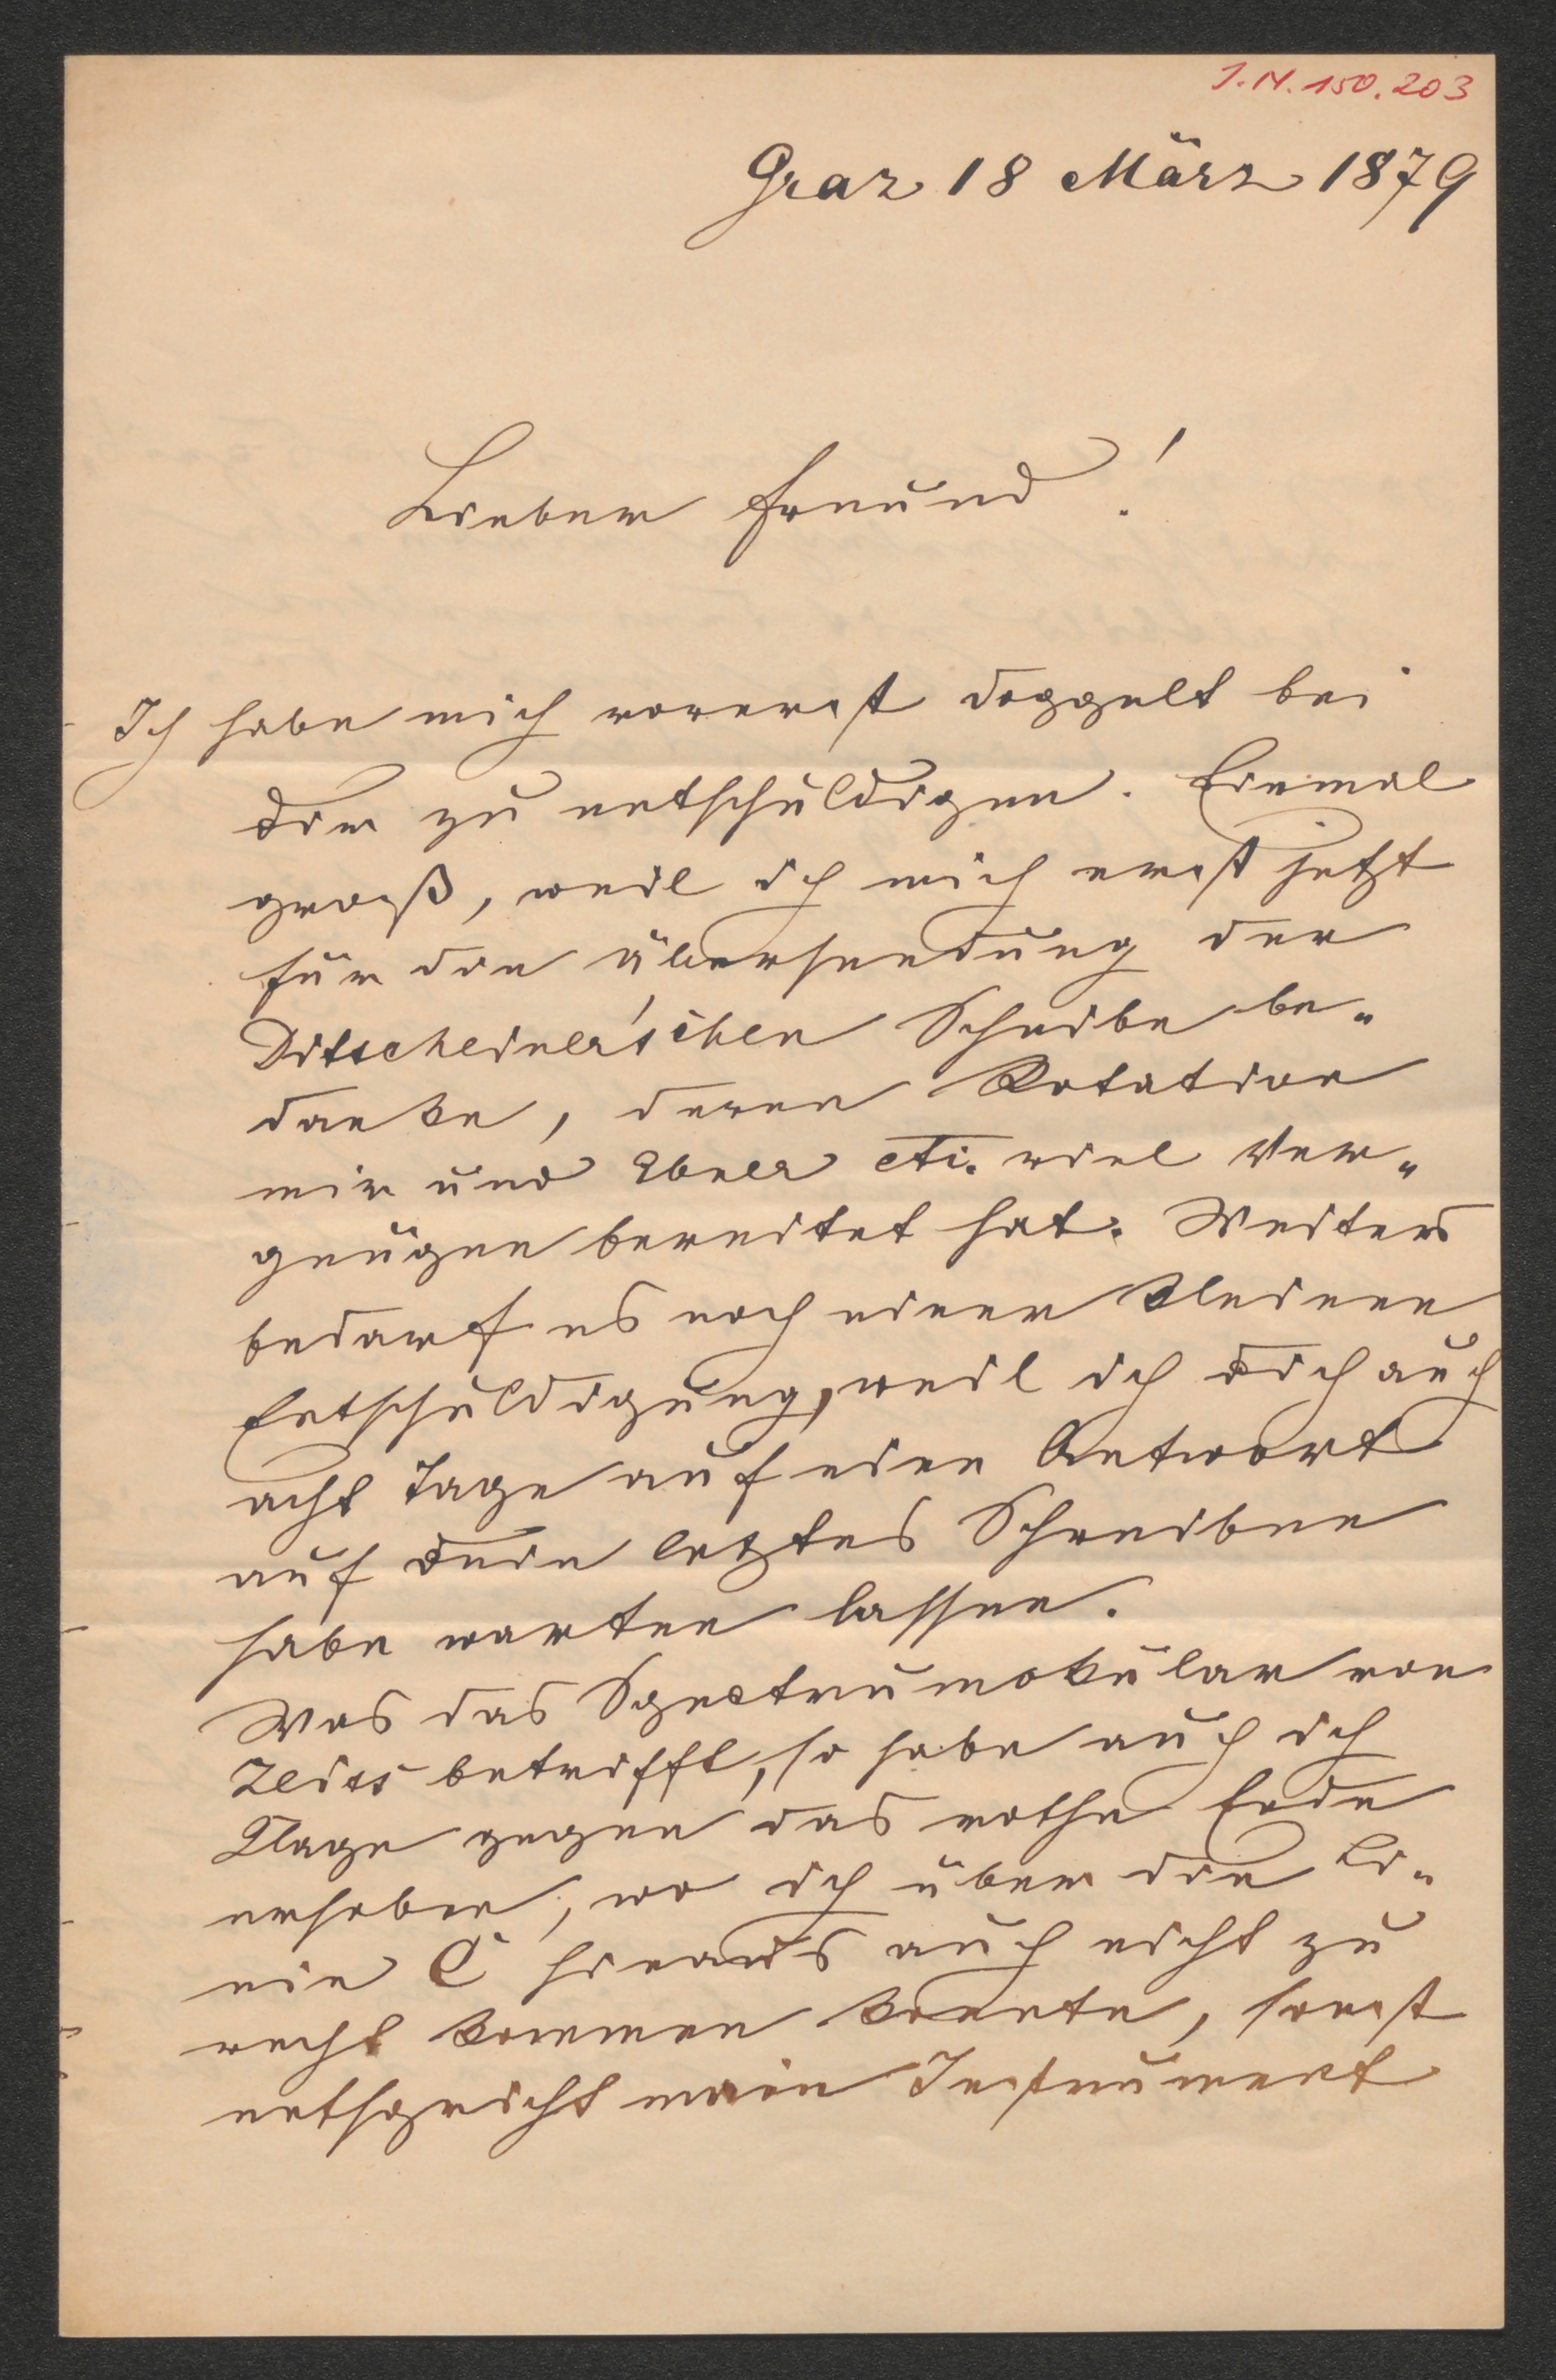 I.N. 150.203
Graz 18 März 1879
Lieber Freund!
Ich habe mich vorerst doppelt bei
Dir zu entschuldigen. Einmal
groß, weil ich mich erst jetzt
für die Übersendung der
Ditscheiner'schen Scheibe be„
danke, deren Rotation
mir und Ebner viel Ver„
gnügen bereitet hat. Weiters
bedarf es noch einer kleinen
Entschuldigung, weil ich Dich auch
acht Tage auf eine Antwort
auf Dein letztes Schreiben
habe warten lassen.
Was das Spectrumokular von
Zeiss betrifft, so habe auch ich
Klage gegen das rothe Ende
erhoben, wo ich über die Li„
nie C hinaus auch nicht zu
recht kommen konnte, sonst
entspricht mein Instrument